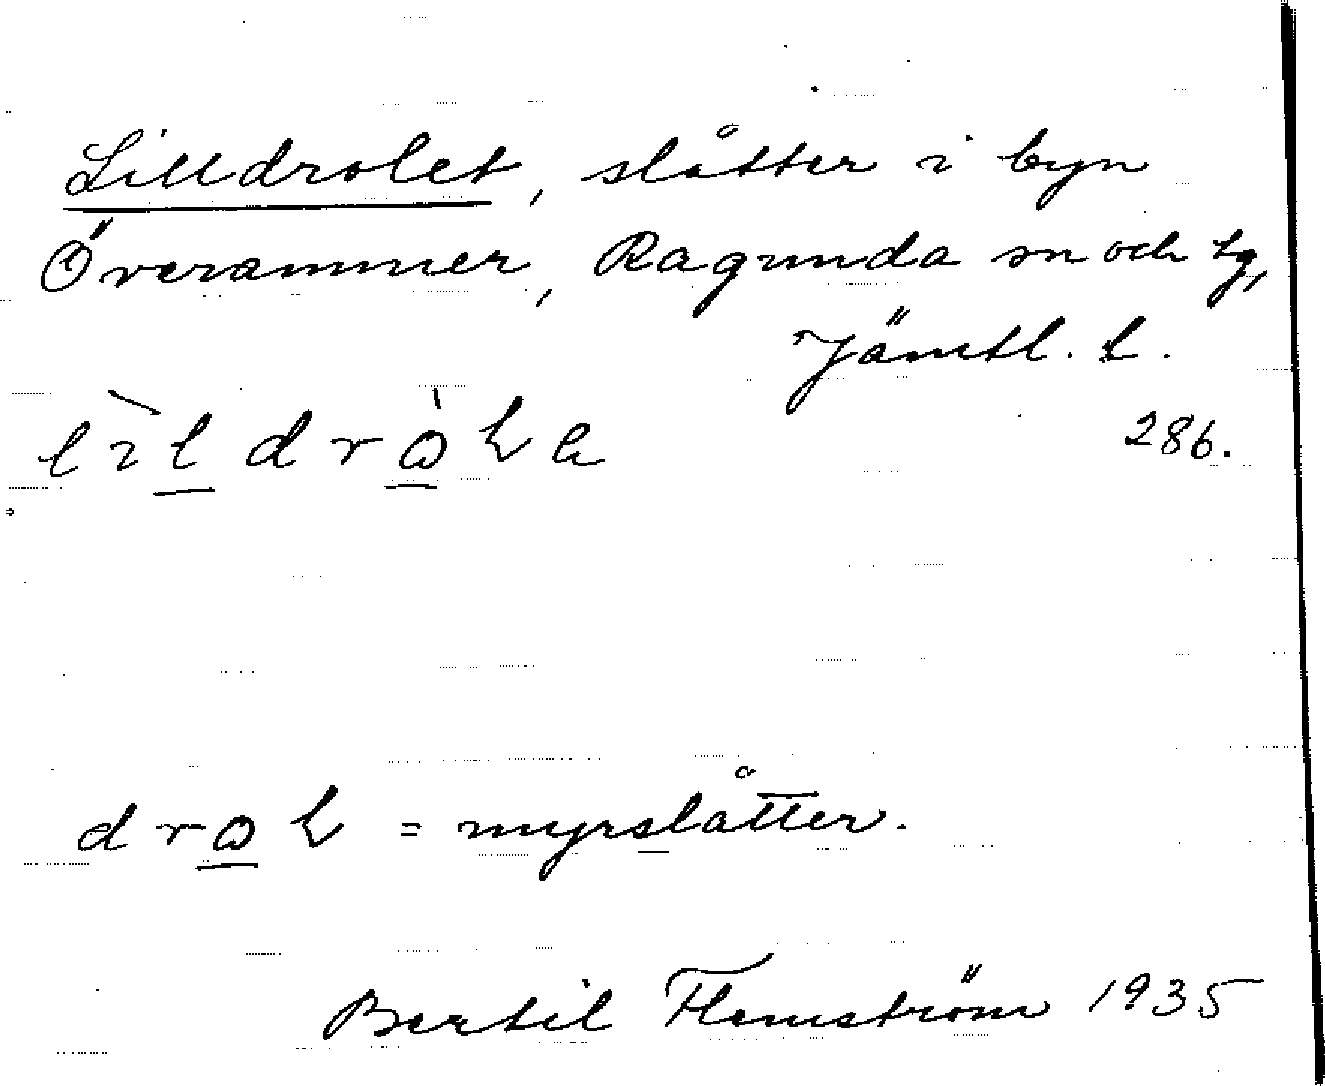 Lilldrolet, slåtter i byn
Överammer, Ragunda sn och tg,
Jämtl. l.
286.
myrslåtter.
Bertil Flemström 1935